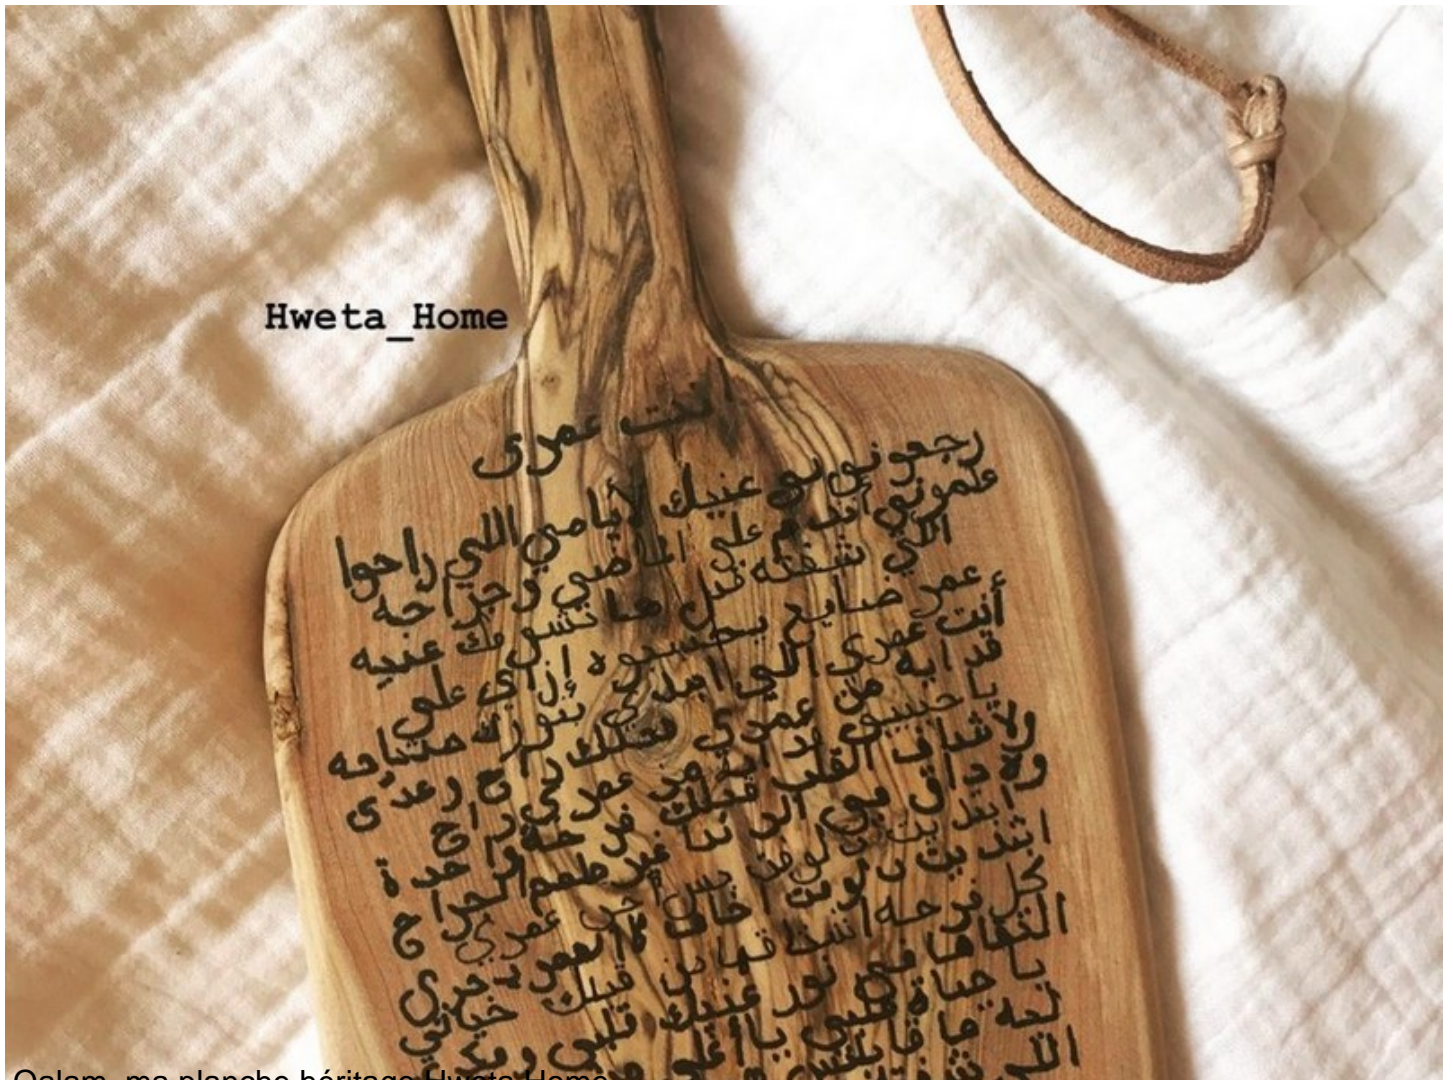 Hweta_Home
انت عمري
رجعوني عنيك لأيامي اللي راحوا
علموني أندم على الماضي وجراحه
اللي شفته قبل ما تشوفك عنيه
عمر ضايع يحسبوه إزاي علي
أنت عمري اللي ابتدي بنورك صباحه
قد ايه من عمري قبلك راح وعدى
يا حبيبي قد ايه من عمري راح
ولا شاف القلب قبلك فرحة واحدة
ولا داق في الدنيا غير طعم الجراح
ابتديت دلوقت بس احب عمري
ابتديت دلوقت اخاف لا العمر يجري
كل فرحه اشتاقها من قبلك خيالي
التقاها في نور عنيك قلبي
يا حياة قلبي يا أغلى
ليه ما قابلتش
اللي
Qalam, ma planche héritage Hweta Home